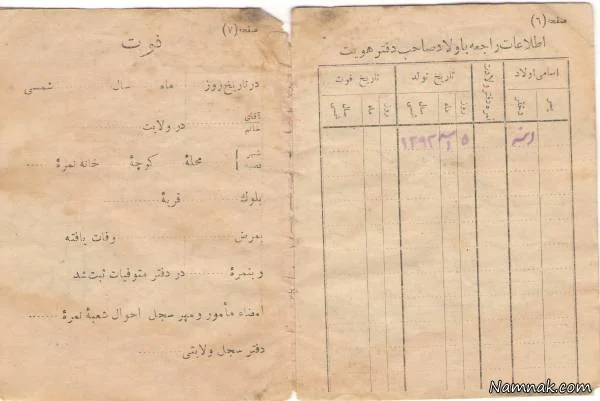 صفحه (۶)
اطلاعات راجعه باولاد صاحب دفتر هویت
اسامی اولاد
نمره دفتر ولادت
تاریخ تولد
تاریخ فوت
پسر
دختر
روز
ماه
سال شمسی
روز
ماه
سال شمسی
۵
۱۲۹۲
صفحه (۷)
فوت
در تاریخ روز ماه سال شمسی
آقای
خانم
در ولایت
شهر
قصبه
محلهٔ کوچهٔ خانه نمرهٔ
بلوك قریهٔ
بمرض وفات یافته
و بنمرهٔ در دفتر متوفیات ثبت شد
امضاء مأمور و مهر سجل احوال شعبهٔ نمرهٔ
دفتر سجل ولایتی
Namnak.com